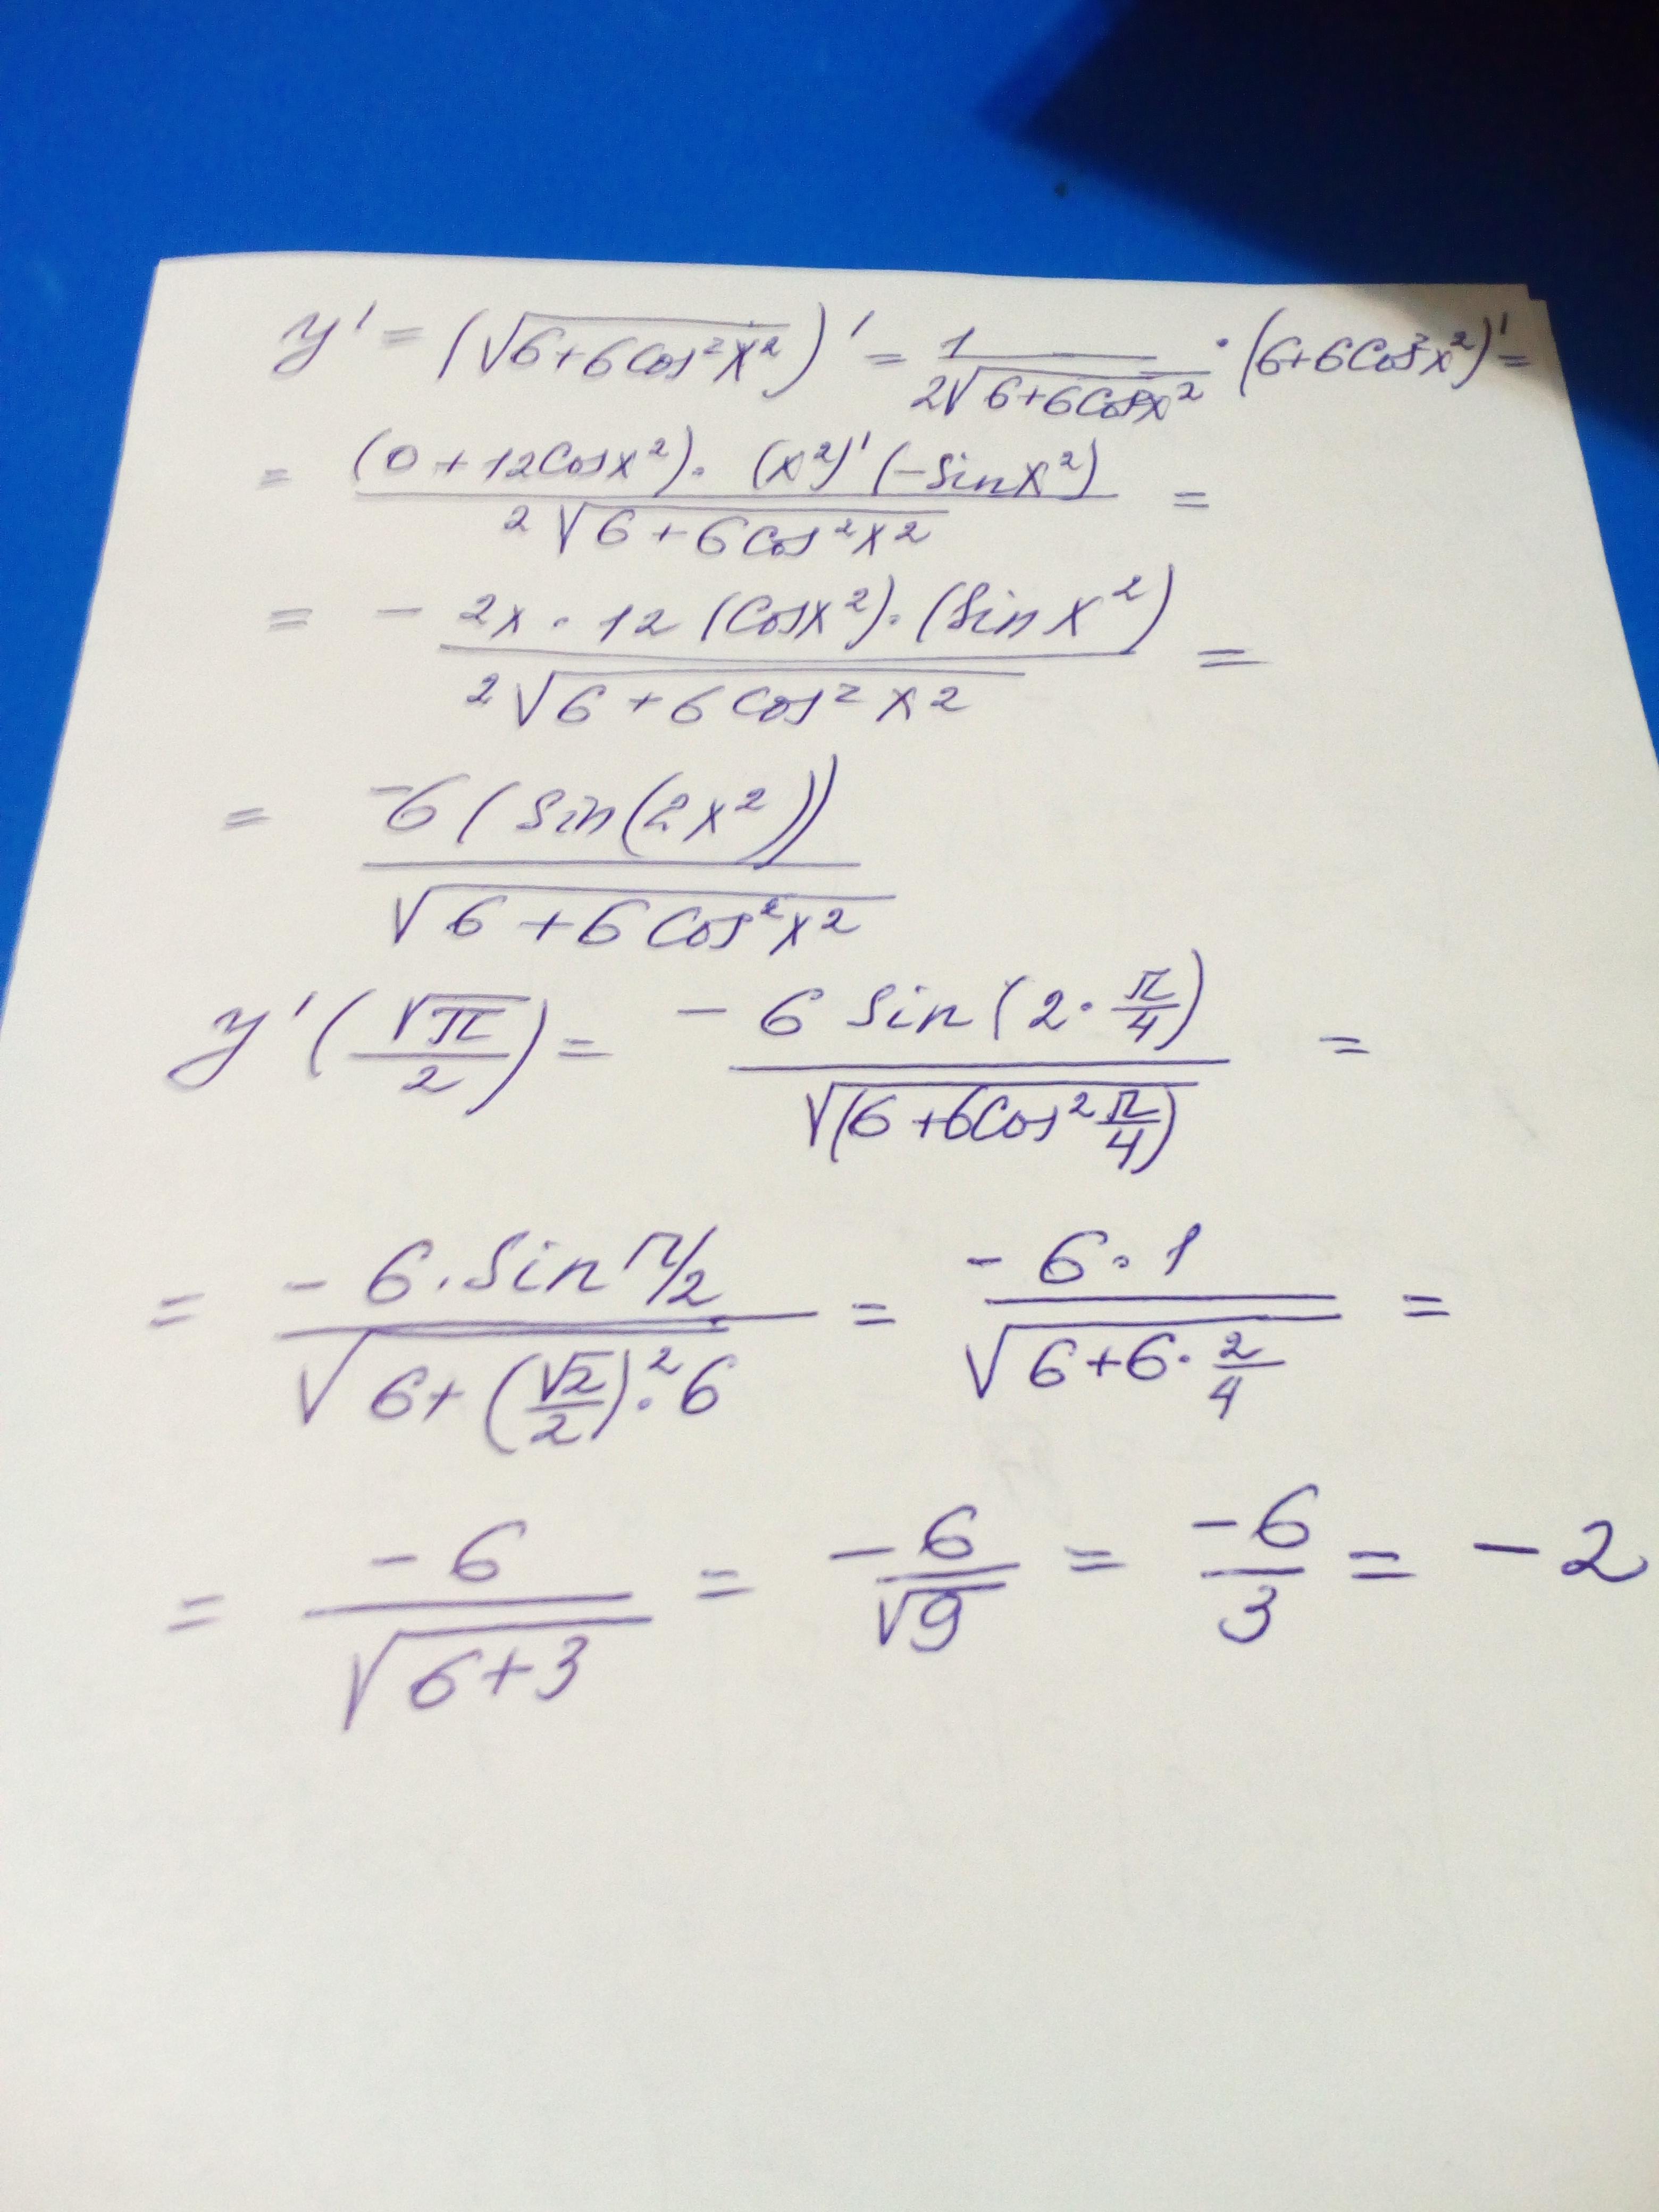 y' = (√(6+6Cos²x²))' = 1/(2√(6+6Cos²x²)) · (6+6Cos²x²)' =
= ((0+12Cosx²)· (x²)' (-Sinx²))/(2√(6+6Cos²x²)) =
= - (2x · 12 (Cosx²)·(Sin x²))/(2√(6+6Cos²x²)) =
= (-6(Sin(2x²)))/(√(6+6Cos²x²))
y'(√π/2) = (-6 Sin(2·π/4))/(√(6+6Cos²π/4)) =
= (-6·Sin π/2)/(√(6+(√2/2)²·6)) = (-6·1)/(√(6+6·2/4)) =
= -6/√(6+3) = -6/√9 = -6/3 = -2